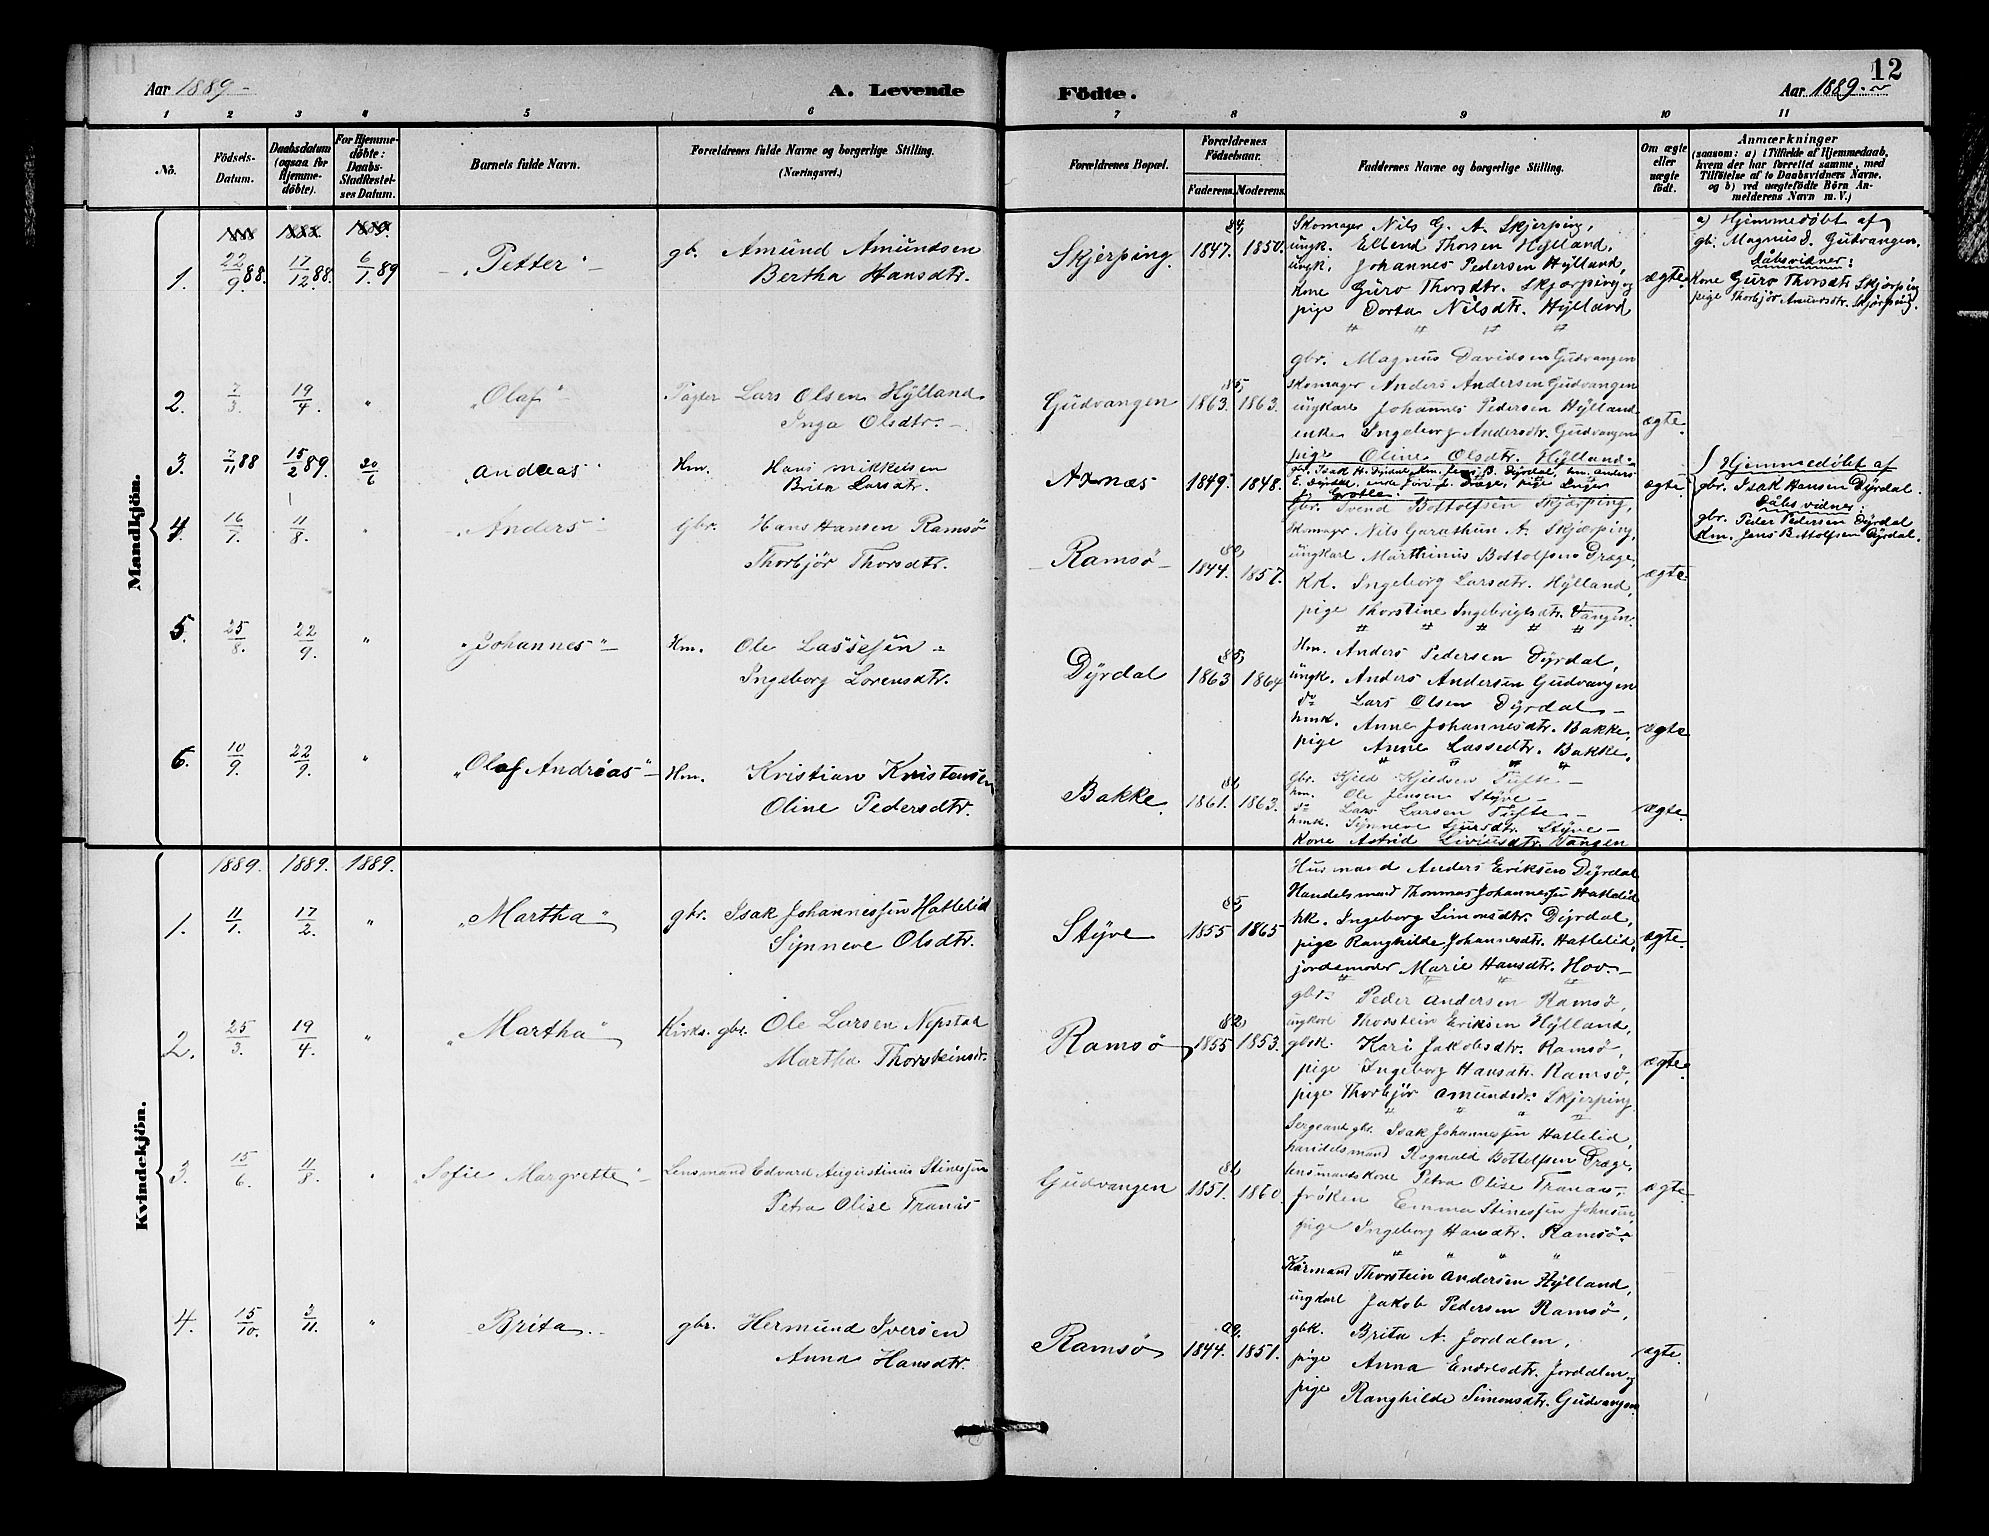 12
Aar 1889 A. Levende Födte. Aar 1889.
1 2 3 4 5 6 7 8 9 10 11
No. Födsels-Datum. Daabsdatum (ogsaa for Hjemme-döbte). For Hjemme-döbte: Daabs-Stadfæstel-ses Datum. Barnets fulde Navn. Forældrenes fulde Navne og borgerlige Stilling. (Næringsvei.) Forældrenes Bopæl. Forældrenes Födselsaar. Faderens. Moderens. Faddernes Navne og borgerlige Stilling. Om ægte eller uægte födt. Anmærkninger (saasom: a) i Tilfælde af Hjemmedaab, hvem der har forrettet samme, med Tilföielse af to Daabsvidners Navne, og b) ved uægtefödte Börn An-melderens Navn m. V.)
Mandkjön.
1. 22/9 88. 17/12 88. 6/1 89 "Petter" gb. Amund Amundsen
Bertha Hansdtr.
Skjerping. 1847. 84, 1850.
Skomager Nils G. A. Skjerping,
ungk. Ellend Thorsen Hylland,
ungk. Johannes Pedersen Hylland,
kone Guro Thorsdtr. Skjærping og
pige Dorta Nilsdtr. Hylland
ægte.
a) Hjemmedøbt af
gb. Magnus D. Gudvangen.
Dåbsvidner:
Kone Guro Thorsdtr Skjørping
pige Thorbjör Amundsdtr. Skjørping.
2. 7/3. 19/4. " "Olaf" Lars Olsen Hylland
Inga Olsdtr.
Gudvangen 1863. 85, 1863.
gbr. Magnus Davidsen Gudvangen
skomager Anders Andersen Gudvangen
ungkarl Johannes Pedersen Hylland
enke Ingeborg Andersdtr. Gudvangen
pige Oline Olsdtr. Hylland
ægte.
3. 7/11 88 15/2 89. 20/6 Andreas Hm. Hans Mikkelsen
Brita Larsdtr.
1849. 1848.
gbr. Isak H. Dyrdal, hm. Jens B. Dyrdal, hm. Anders
E. Dyrdal,
ægte
Hjemmedøbt af
gbr. Isak Hansen Dyrdal.
Dåbsvidner:
gbr. Peder Pedersen Dyrdal
Hm. Jens Bottolfsen Dyrdal.
4. 16/7. 11/8. " "Anders" Gbr. Hans Hansen Ramsö
Thorbjör Thorsdtr.
Ramsö 1844. 1857.
Gbr. Svend Bottolfsen Skjørping,
skomager Nils A. Skjærping,
ungkarl Marthinus Bottolfsen Dræge,
KK. Ingeborg Larsdtr. Hylland,
pige Thorstine Ingebrigtsdtr. Vangen.
ægte.
5. 25/8. 22/9. " "Johannes" Hm. Ole Lassesen
Ingeborg Lorensdtr.
Dyrdal 1863 85, 1864
Hm. Anders Pedersen Dyrdal,
ungk. Anders Andersen Gudvangen
do Lars Olsen Dyrdal
hmk. Anne Johannesdtr. Bakke,
pige Anne Lassedtr. Bakke.
ægte
6. 10/9. 22/9. " "Olaf Andreas" Hm. Kristian Kristensen
Oline Pedersdtr.
Bakke. 1861. 1863.
gbr. Kjeld Kjeldsen Tufte
hm. Ole Jensen Styve
do Lars Larsen Tufte
hmk. Synneve Styve
Kone Astrid Vangen
ægte.
Kvindekjön.
1889. 1889. 1889.
1. 11/1. 17/2. " "Martha" gbr. Isak Johannessen Hattelid
Synneve Olsdtr.
Styve 1855 85, 1865
Husmand Anders Eriksen Dyrdal
Handelsmand Thommas Johannessen Hattelid
hk. Ingeborg Simonsdtr. Dyrdal,
pige Ranghilde Johannesdtr. Hattelid,
jordemoder Marie Hansdtr. Hov.
ægte.
2. 25/3. 19/4. " "Martha" Kirks. gbr. Ole Larsen Nepstad
Martha Thorsteinsdr.
Ramsö 1855 82, 1853.
gbr. Peder Andersen Ramsö,
ungkarl Thorstein Eriksen Hylland,
gbk. Kari Jakobsdtr. Ramsö,
pige Ingeborg Hansdtr. Ramsö,
pige Thorbjör Amundsdr. Skjerping
ægte.
3. 15/6. 11/8. " Sofie Margrette Lensmand Edvard Augustinus Stinessen
Petra Olise Tranås
Gudvangen 1851. 1860.
Sergeant gbr. Isak Johannessen Hattelid,
handelsmand Rognald Bottolfsen Dræge,
lensmandskone Petra Olise Tranaas,
fröken Emma Stinessen Johnsen,
pige Ingeborg Hansdtr. Ramsö
ægte.
4. 15/10. 3/11. " Brita gbr. Hermund Iversen
Anna Hansdtr.
Ramsö 1844. 1851.
Kårmand Thorstein Andersen Hylland,
ungkarl Jakob Pedersen Ramsö,
gbk. Brita A. Jordalen,
pige Anna Endresdtr. Jordalen og
pige Ranghilde Simonsdtr. Gudvangen
ægte.